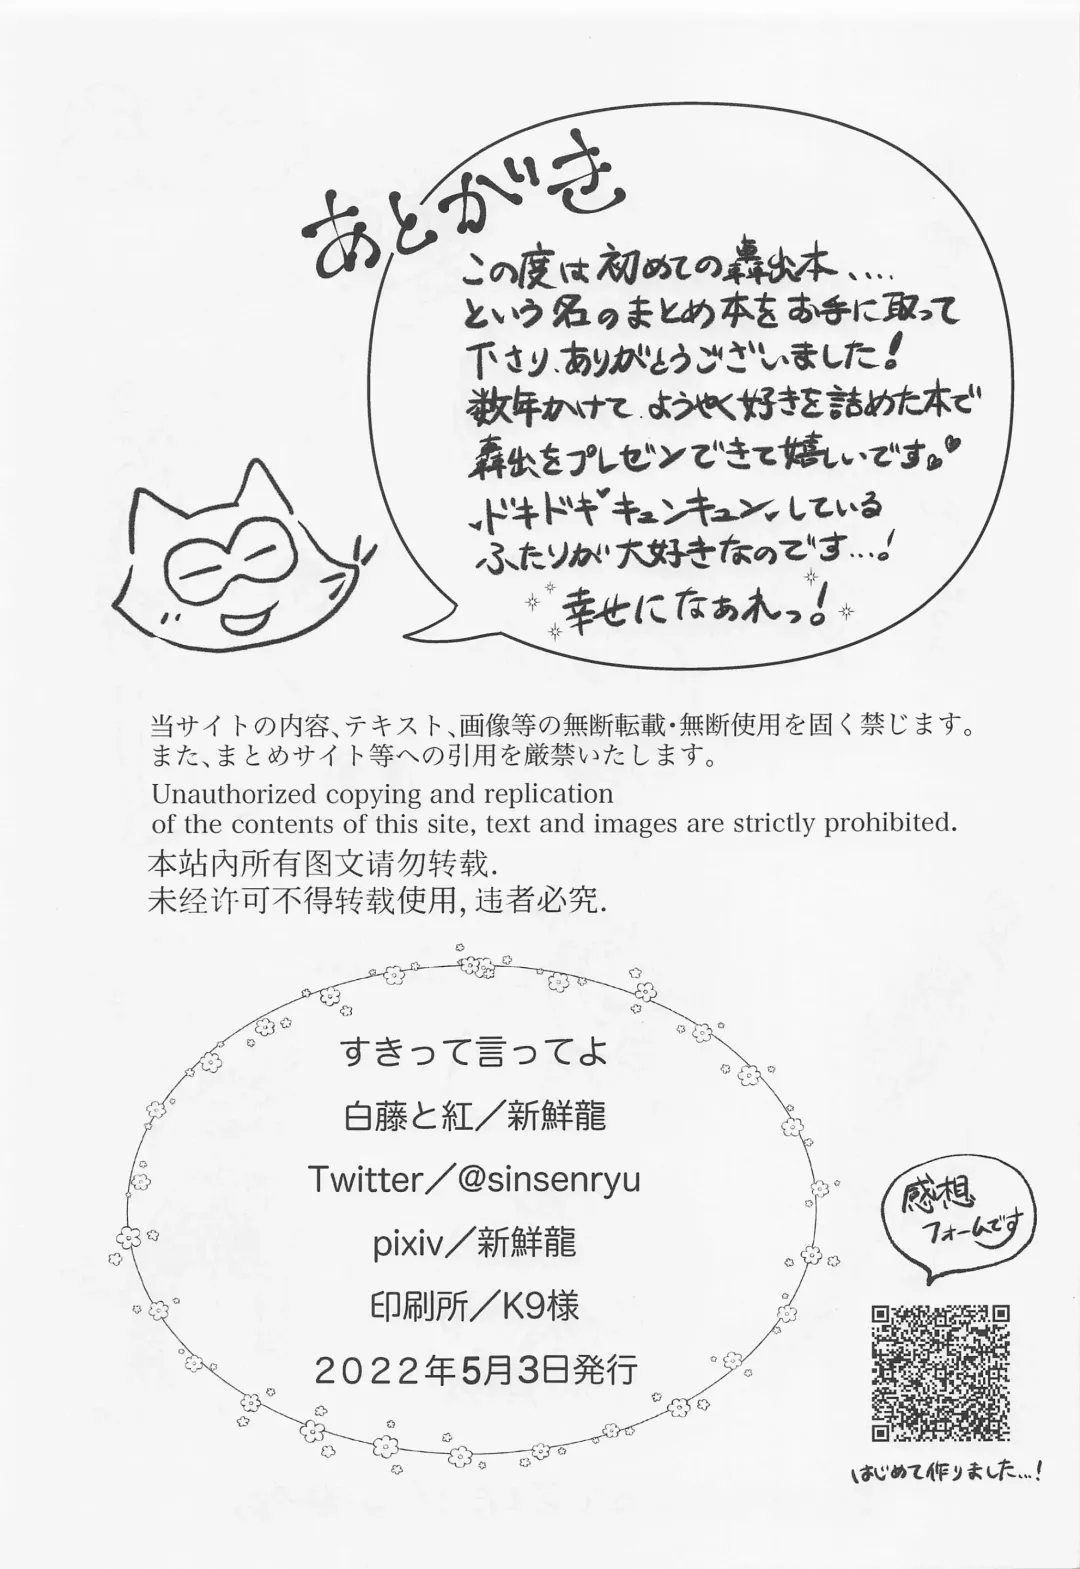 あとがき
この度は初めての轟出本....
という名のまとめ本をお手に取って
下さり、ありがとうございました!
数年かけて、ようやく好きを詰めた本で
轟出をプレゼンできて嬉しいです。♥♥
♥ドキドキ♥キュンキュン♥している
ふたりが大好きなのです...!
幸せになあれっ!
当サイトの内容、テキスト、画像等の無断転載・無断使用を固く禁じます。
また、まとめサイト等への引用を厳禁いたします。
Unauthorized copying and replication
of the contents of this site, text and images are strictly prohibited.
本站内所有图文请勿转载.
未经许可不得转载使用, 违者必究.
すきって言ってよ
白藤と紅／新鮮龍
Twitter／@sinsenryu
pixiv／新鮮龍
印刷所／K9様
２０２２年5月3日発行
感想
フォームです
はじめて作りました...!